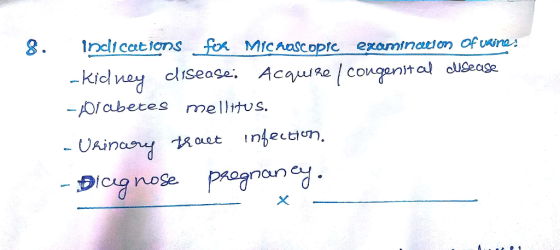 8. Indications for Microscopic examination of urine:
- Kidney disease: Acquire / congenital disease
- Diabetes mellitus.
- Urinary tract infection.
- Diagnose pregnancy.
x